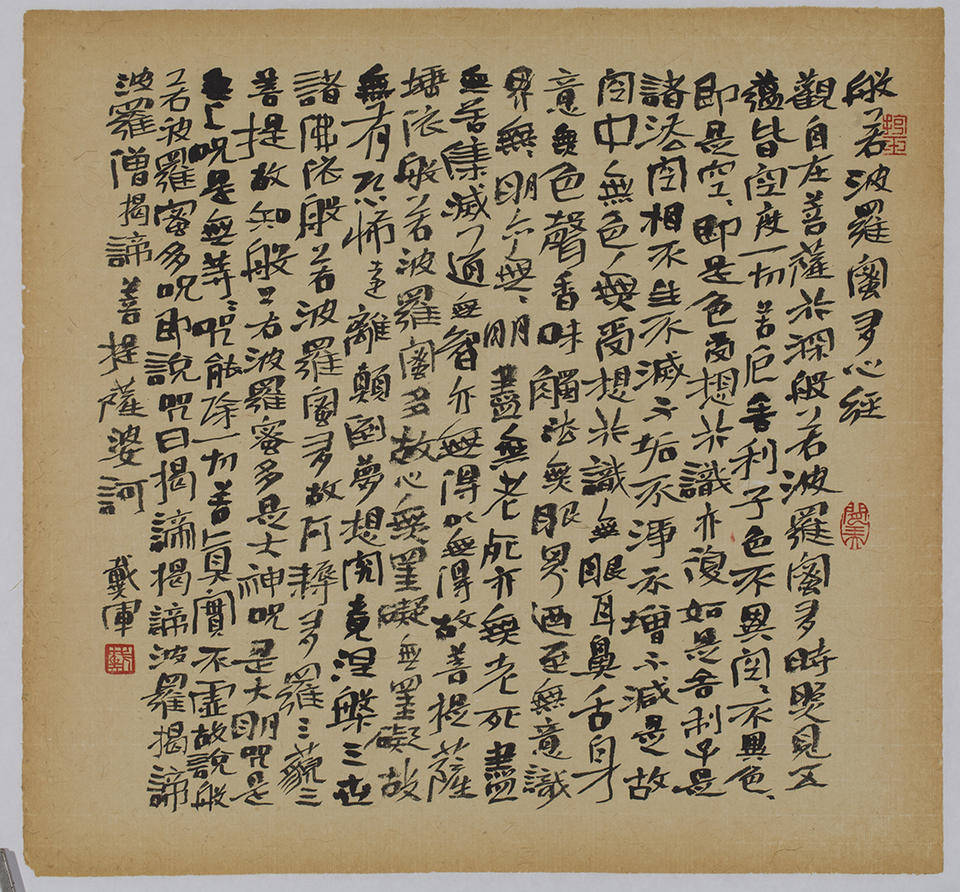 般若波羅蜜多心經
觀自在菩薩於深般若波羅蜜多時照見五
蘊皆空度一切苦厄舍利子色不異空〻不異色〻
即是空〻即是色受想行識亦復如是舍利子是
諸法空相不生不滅不垢不淨不增不減是故
空中無色無受想行識無眼耳鼻舌身
意無色聲香味觸法無眼界迺至無意識
界無〻明亦無〻明盡無老死亦無老死盡
無苦集滅道無智亦無得以無得故菩提薩
埵依般若波羅蜜多故心無罣礙無罣礙故
無有恐怖遠離顛倒夢想究竟涅槃三世
諸佛依般若波羅蜜多故阿耨多羅三藐三
菩提故知般若波羅蜜多是大神咒是大明咒是
無上咒是無等〻咒能除一切苦真實不虛故說般
若波羅蜜多咒即說咒曰揭諦揭諦波羅揭諦
波羅僧揭諦菩提薩婆訶
戴軍